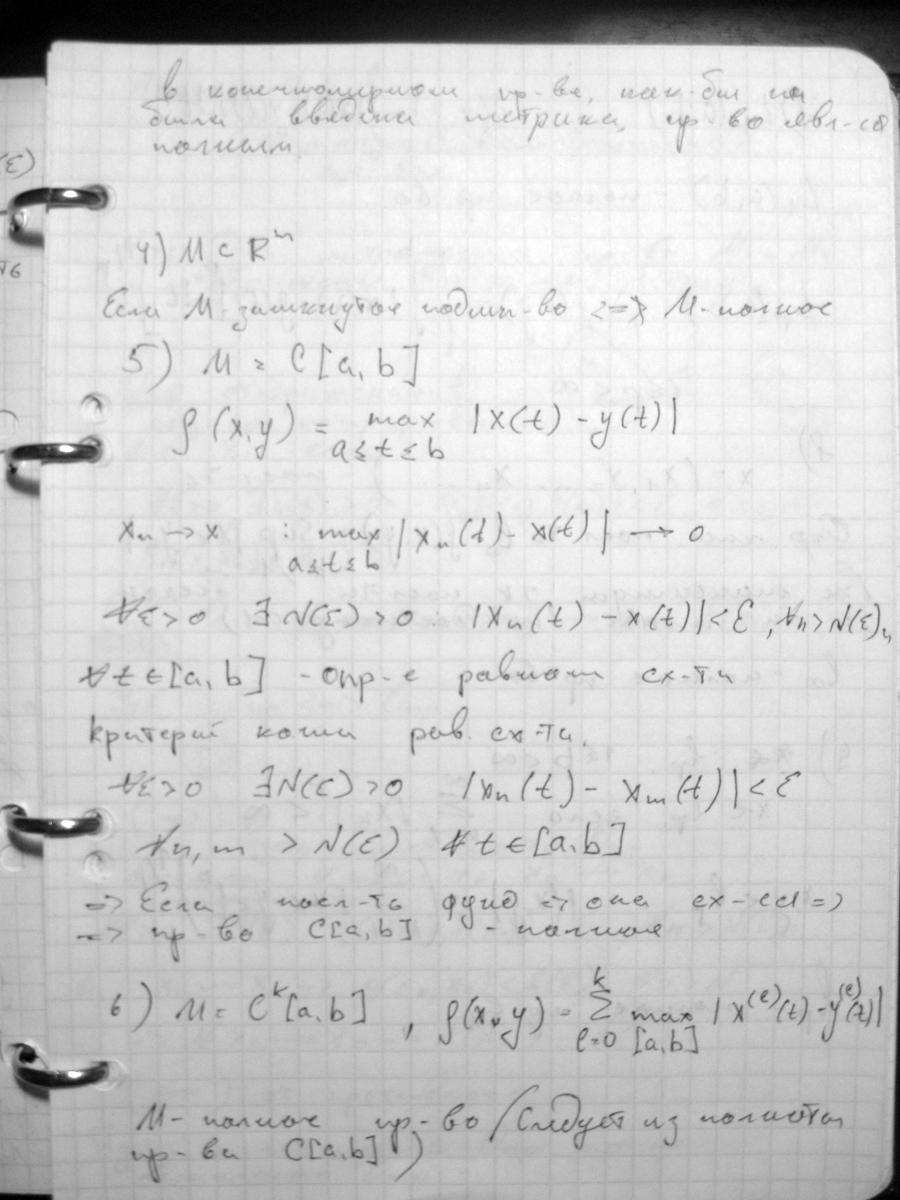 в конечномерном пр-ве, как-бы не
была введена метрика, пр-во явл-ся
полным.
4) M ⊂ R^n
Если M-замкнутое подмн-во <=> M-полное
5) M = C[a,b]
ρ(x,y) = max |x(t) - y(t)|
a≤t≤b
x_n → x : max |x_n(t) - x(t)| → 0
a≤t≤b
∀ε>0 ∃N(ε)>0 : |x_n(t) - x(t)|<ε, ∀n>N(ε) и
∀t∈[a,b] - опр-е равном сх-ти
Критерий коши рав. сх-ти.
∀ε>0 ∃N(ε)>0 |x_n(t) - x_m(t)|<ε
∀n,m > N(ε) ∀t∈[a,b]
=> Если посл-ть фунд => она сх-ся =>
=> пр-во C[a,b] - полное
6) M = C^k[a,b] , ρ(x,y) = k∑l=0 max |x^(l)(t) - y^(l)(t)|
[a,b]
M- полное пр-во (Следует из полноты
пр-ва C[a,b])
(ε)